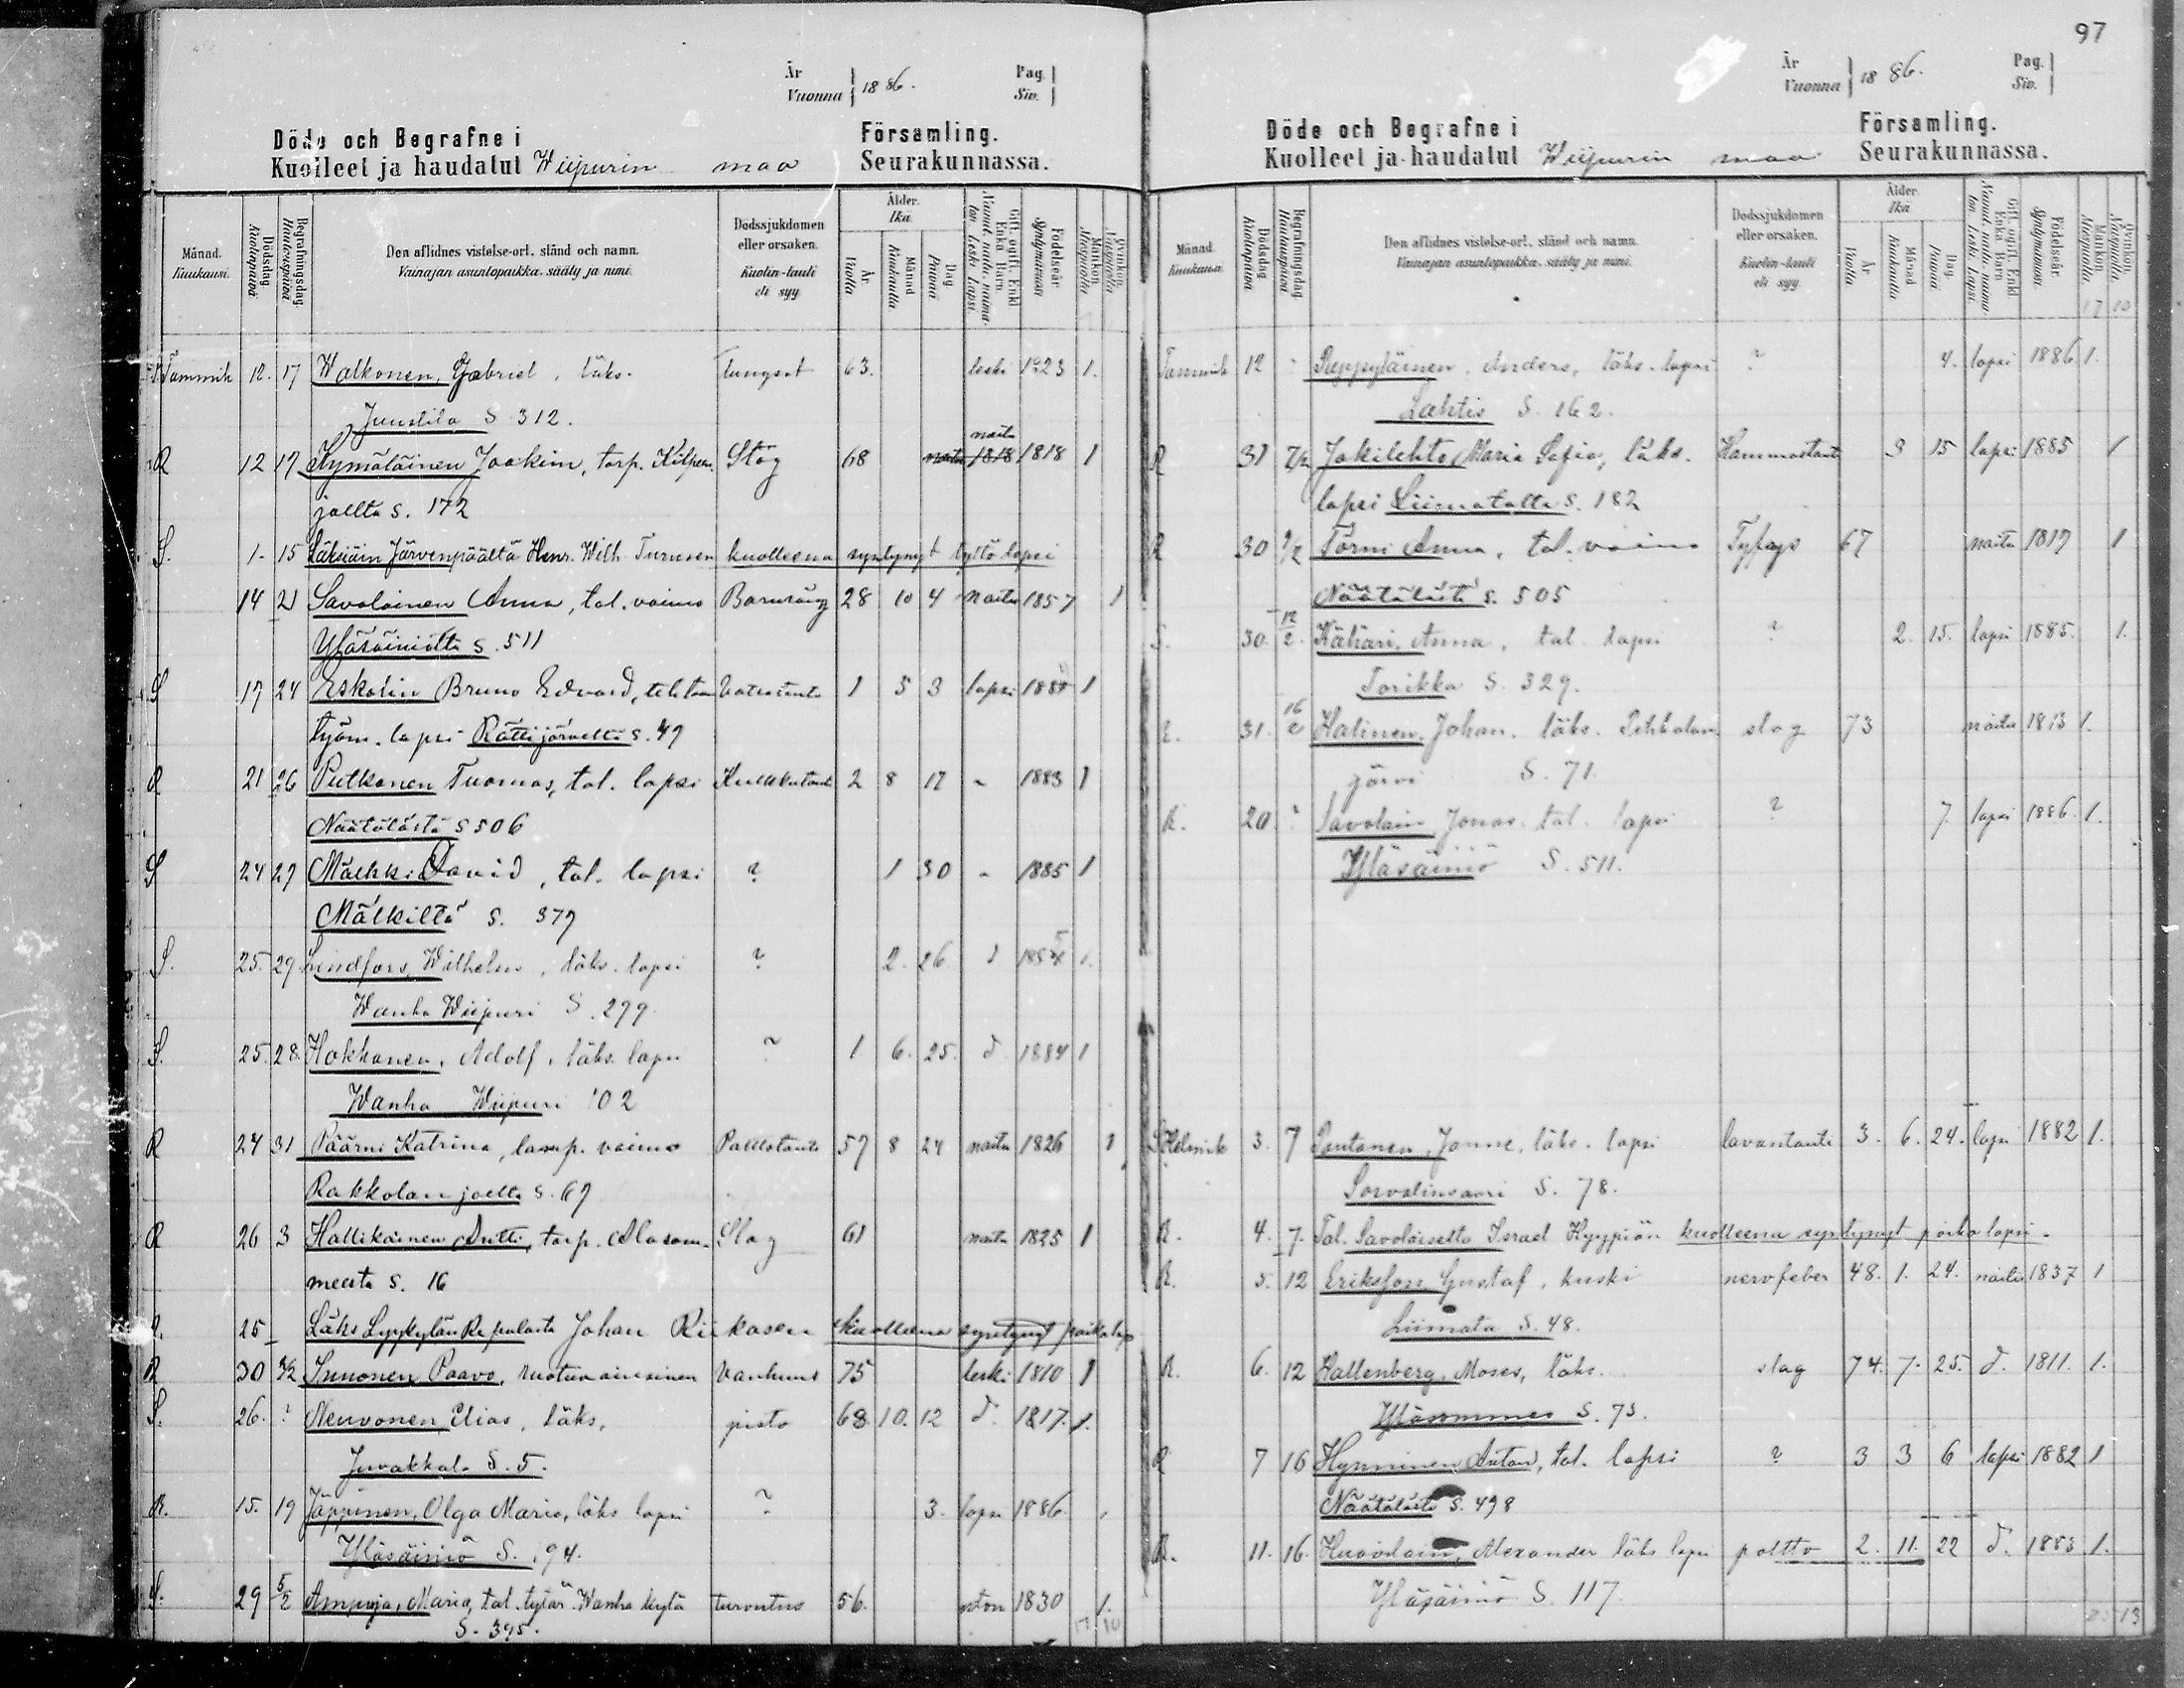 År
Vuonna 1886.
Pag.
Siv.
Döde och Begrafne i Församling.
Kuolleet ja haudatut Wiipurin maa Seurakunnassa.
Månad. Kuukausi.
Dödsdag. Kuolinpäivä
Begrafningsdag. Hautauspäivä
Den aflidnes vistelse-ort, stånd och namn.
Vainajan asuntopaikka, sääty ja nimi.
Dödssjukdomen eller orsaken.
Kuolin-tauti eli syy.
Ålder. Ikä.
År. Vuotta
Månad. Kuukautta
Dag. Päivää
Gift, ogift, Enkl. Enka Barn.
Födelseår. Syntymävuosi
Mankön. Miespuolia
Qvinkön.
Tammik 12. 17 Walkonen, Gabriel, läks. lungsot 63. leski 1823 1.
Juustila S. 312.
R 12 17 Kymäläinen Joakim, torp. Kilpeen Slag 68 naitu 1818 1818 1
joelta s. 172
S. 1. 15 Läksiäin Järvenpäältä Henr. Wilh. Turusen kuolleena syntynyt tyttö lapsi
14 21 Savolainen Anna, tal. vaimo Barnsäng 28 10 4 naitu 1857 1
Yläsäiniöltä s. 511
S 17 24 Eskolin Bruno Edvard, tehtaan Vatsatauti 1 5 3 lapsi 188 1
työm. lapsi Rättijärveltä s. 49
R 21 26 Putkonen Tuomas, tal. lapsi Kurkkutauti 2 8 17 - 1883 1
Näätälästä s 506
S 24 27 Mälkki David, tal. lapsi ? 1 30 - 1885 1
Mälkiltä s. 379
S. 25. 29 Lindfors Wilhelm, läks. lapsi ? 2. 26 d 1.
Wanha Wiipuri S. 299.
S. 25. 28. Hokkanen, Adolf, läks. lapsi ? 1 6. 25. d. 1884 1
Wanha Wiipuri 302
R 24 31 Päärni Katrina, lamp. vaimo Polttotauti 57 8 24 naitu 1826 1
Rakkolanjoelta s. 67
R 26 3 Hallikainen Antti, torp. Alasom- Slag 61 naitu 1825 1
meesta s. 16
R. 25 Läks Lyykylän Repulasta Johan Riikosen kuolleena syntynyt poika laps
R 30 3/2 Innonen Paavo, ruotuvaivainen Vanhuus 75 leski 1810 1
S. 26. ? Neuvonen Elias, läks. pisto 68. 10. 12 d. 1817. 1.
Juvakkala S. 5.
R. 15. 19 Jäppinen, Olga Maria, läks lapsi ? 3. lapsi 1886.
Yläsäiniö S. 194.
S. 29 5/2 Ampuja, Maria, tal. tytär Wanha kylä turvotus 56. 1830 1.
S. 395.
17 10
97
År
Vuonna 1886.
Pag.
Siv.
Döde och Begrafne i Församling.
Kuolleet ja haudatut Wiipurin maa Seurakunnassa.
Månad. Kuukausi.
Dödsdag. Kuolinpäivä
Begrafningsdag. Hautauspäivä
Den aflidnes vistelse-ort, stånd och namn.
Vainajan asuntopaikka, sääty ja nimi.
Dödssjukdomen eller orsaken.
Kuolin-tauti eli syy.
Ålder. Ikä
År. Vuotta
Månad. Kuukautta
Dag. Päivää
Gift, ogift, Enkl. Enka Barn.
Födelseår. Syntymävuosi.
Mankön. Miespuolia
Qvinkön.
17 10
Tammik 12 - Reppyläinen Anders, läks. lapsi ? 4. lapsi 1886 1.
Lahtis S. 162.
R 31 7/2 Jokilehto Maria Sofia, läks. Hammastauti 3 15 lapsi 1885 1
lapsi Liimatalta s. 182
R 30 9/2 Törni Anna, tal. vaimo Tyfus 67 naitu 1819 1
Näätälästä s. 505
S. 30. 12/2. Kähäri, Anna, tal. lapsi ? 2. 15. lapsi 1885. 1.
Torikka S. 329.
R. 31. 16/2 Halinen, Johan. läks. Pihkalan slag 73 naitu 1813 1.
järvi S. 71.
R. 20. ? Savolain Jonas. tal. lapsi ? 7. lapsi 1886. 1.
Yläsäiniö S. 511.
S Helmik 3. 7 Pentonen, Janne, läks. lapsi lavantauti 3. 6. 24. lapsi 1882 1.
Sorvalinsaari S. 78.
R. 4. 7. Tal. Savolaiselta Israel Hyypiän kuolleena syntynyt poika lapsi.
R. 5. 12 Eriksson Gustaf, kuski nervfeber 48. 1. 24. naitu 1837 1
Liimata S. 48.
R. 6. 12 Hallenberg, Moses, läks. slag 74. 7. 25. d. 1811. 1.
Yläsommes S. 73.
R 7 16 Hynninen Anton, tal. lapsi ? 3 3 6 lapsi 1882 1
Näätälästä S. 498
R. 11. 16. Huovilain, Alexander läks lapsi poltto 2. 11. 22 d. 1883 1.
Yläsäiniö S. 117.
13